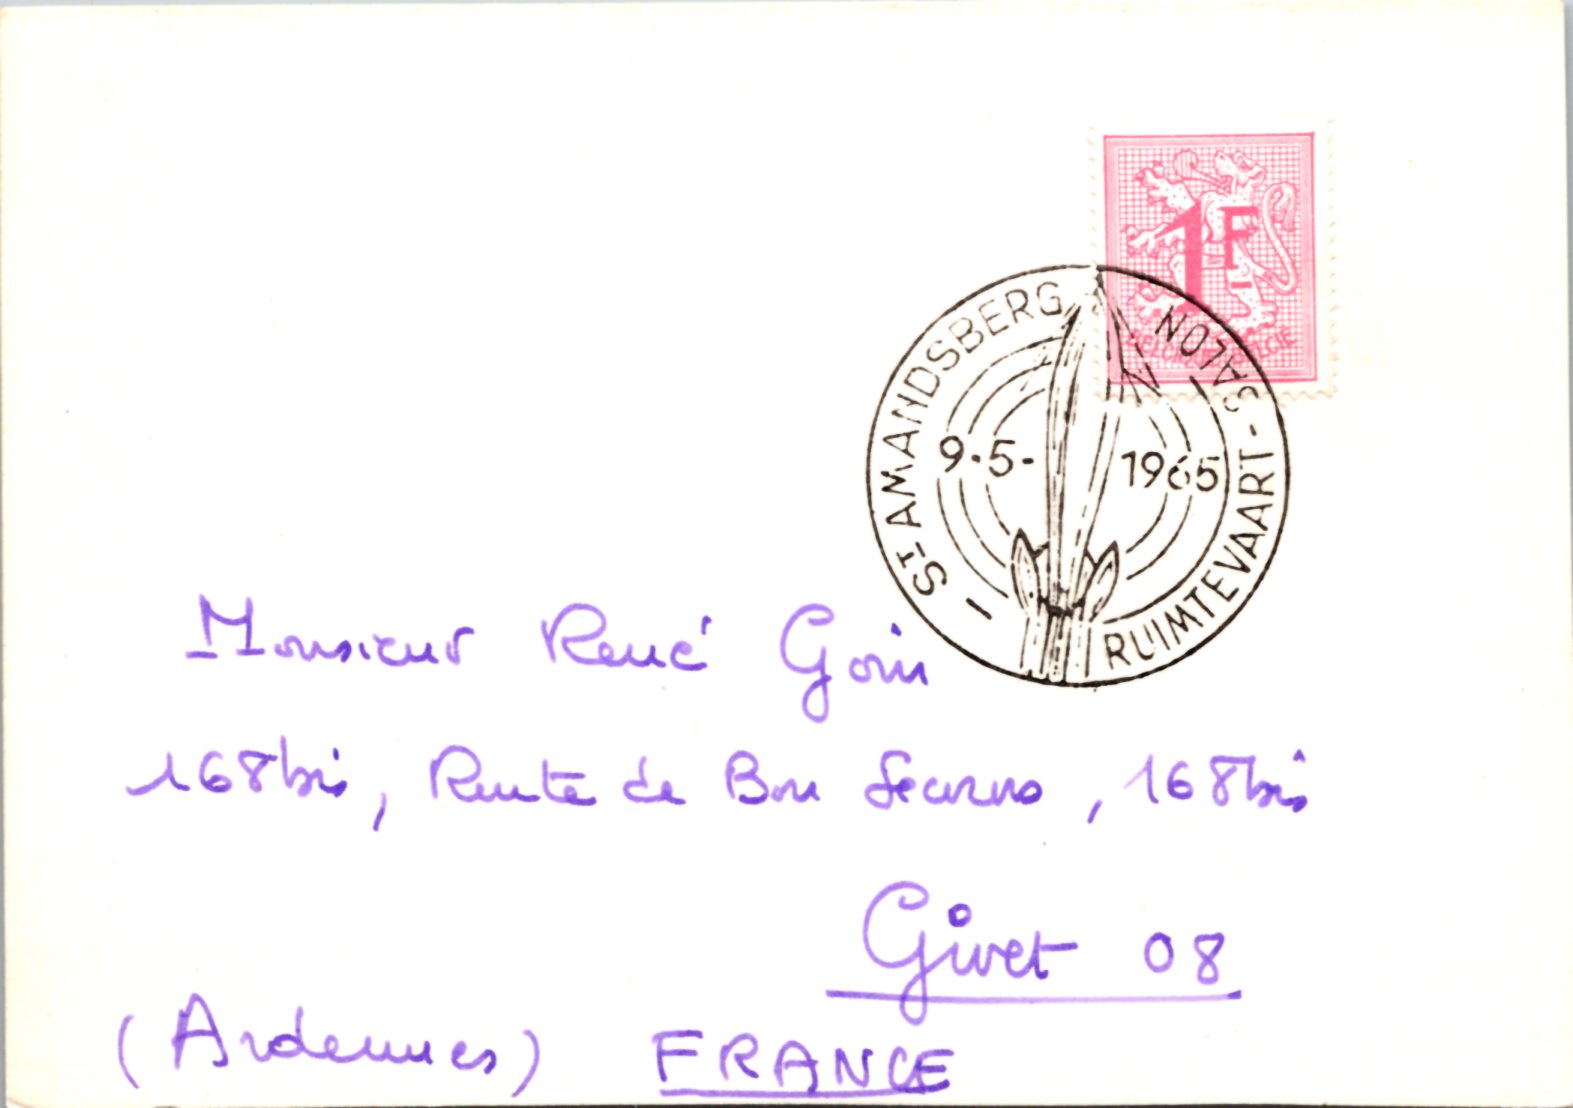 1F
BELGIQUE-BELGIË
ST AMANDSBERG
SALON
RUIMTEVAART -
9.5-1965
Monsieur René Goin
168bis, Route de Bon Secours, 168bis
Givet 08
(Ardennes) FRANCE